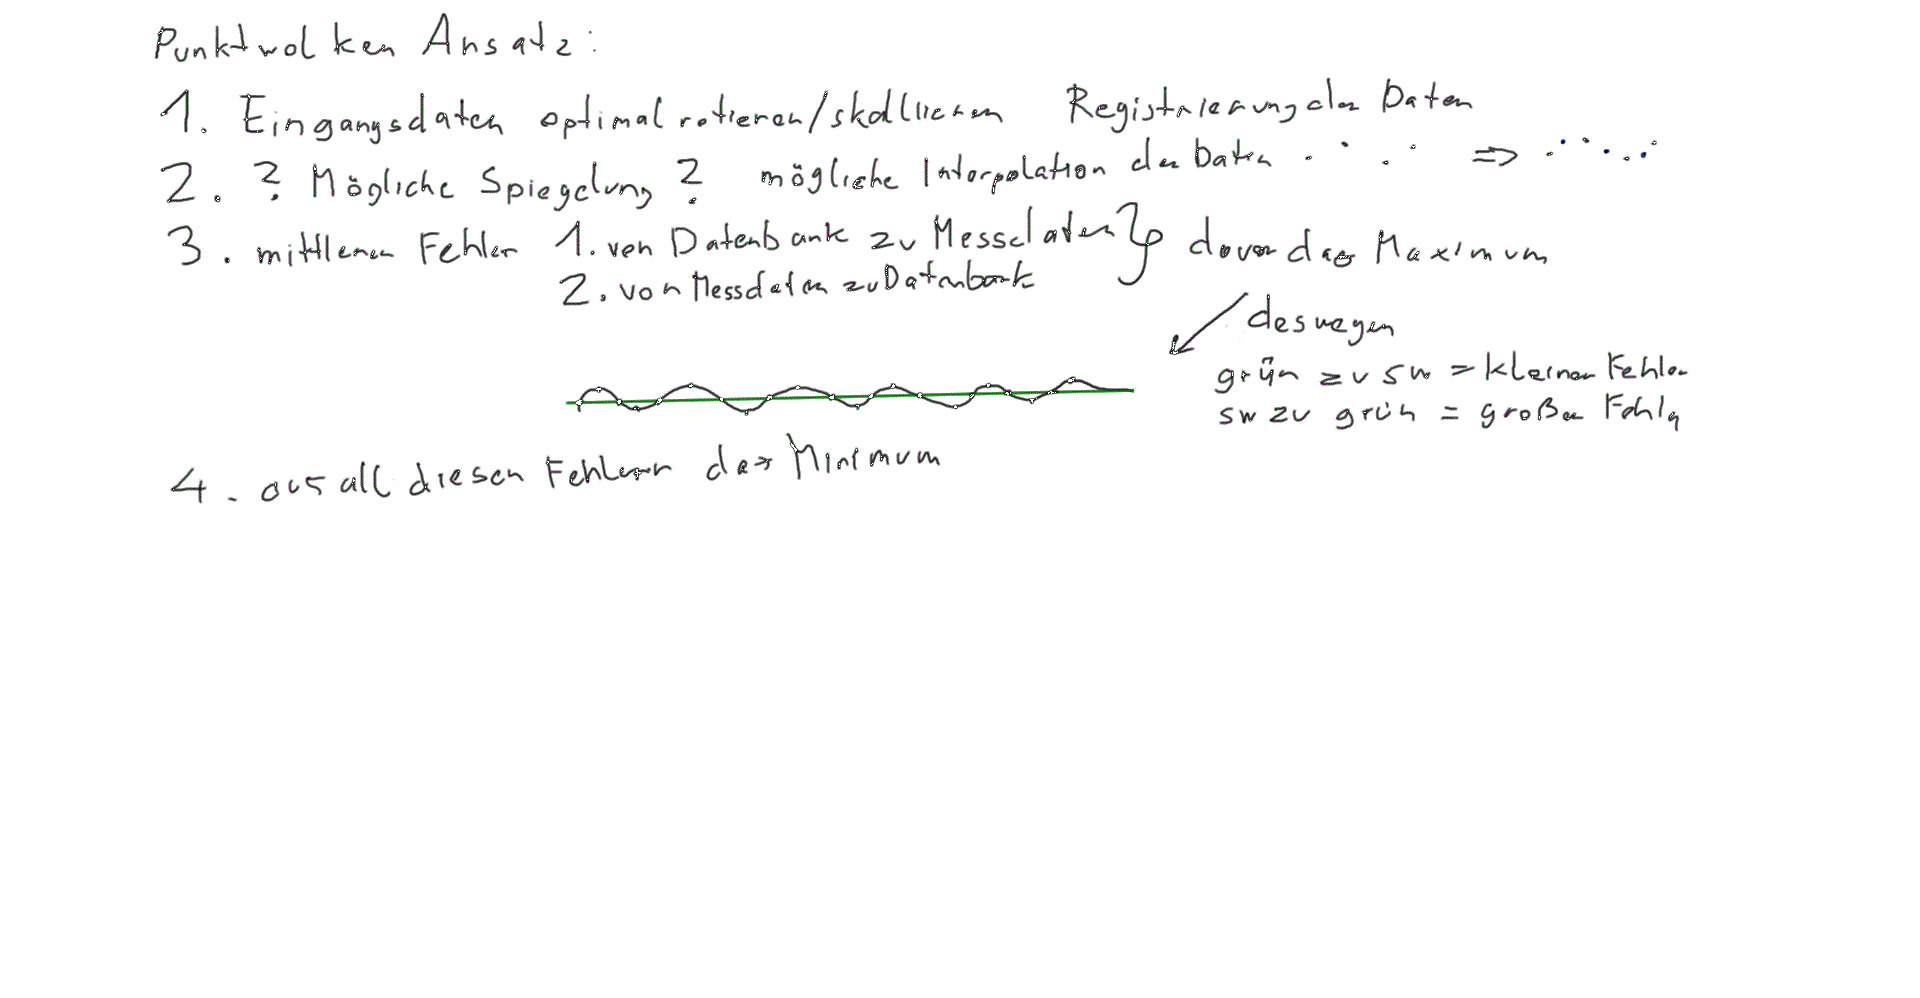 Punktwolken Ansatz:
1. Eingangsdaten optimal rotieren/skallieren Registrierung der Daten
2. ? Mögliche Spiegelung ? mögliche Interpolation der Daten . . . . => . . . . . . .
3. mittleren Fehler 1. von Datenbank zu Messdaten } davon das Maximum
2. von Messdaten zu Datenbank
deswegen
grün zu sw = kleiner Fehler
sw zu grün = großer Fehler
4. aus all diesen Fehlern das Minimum